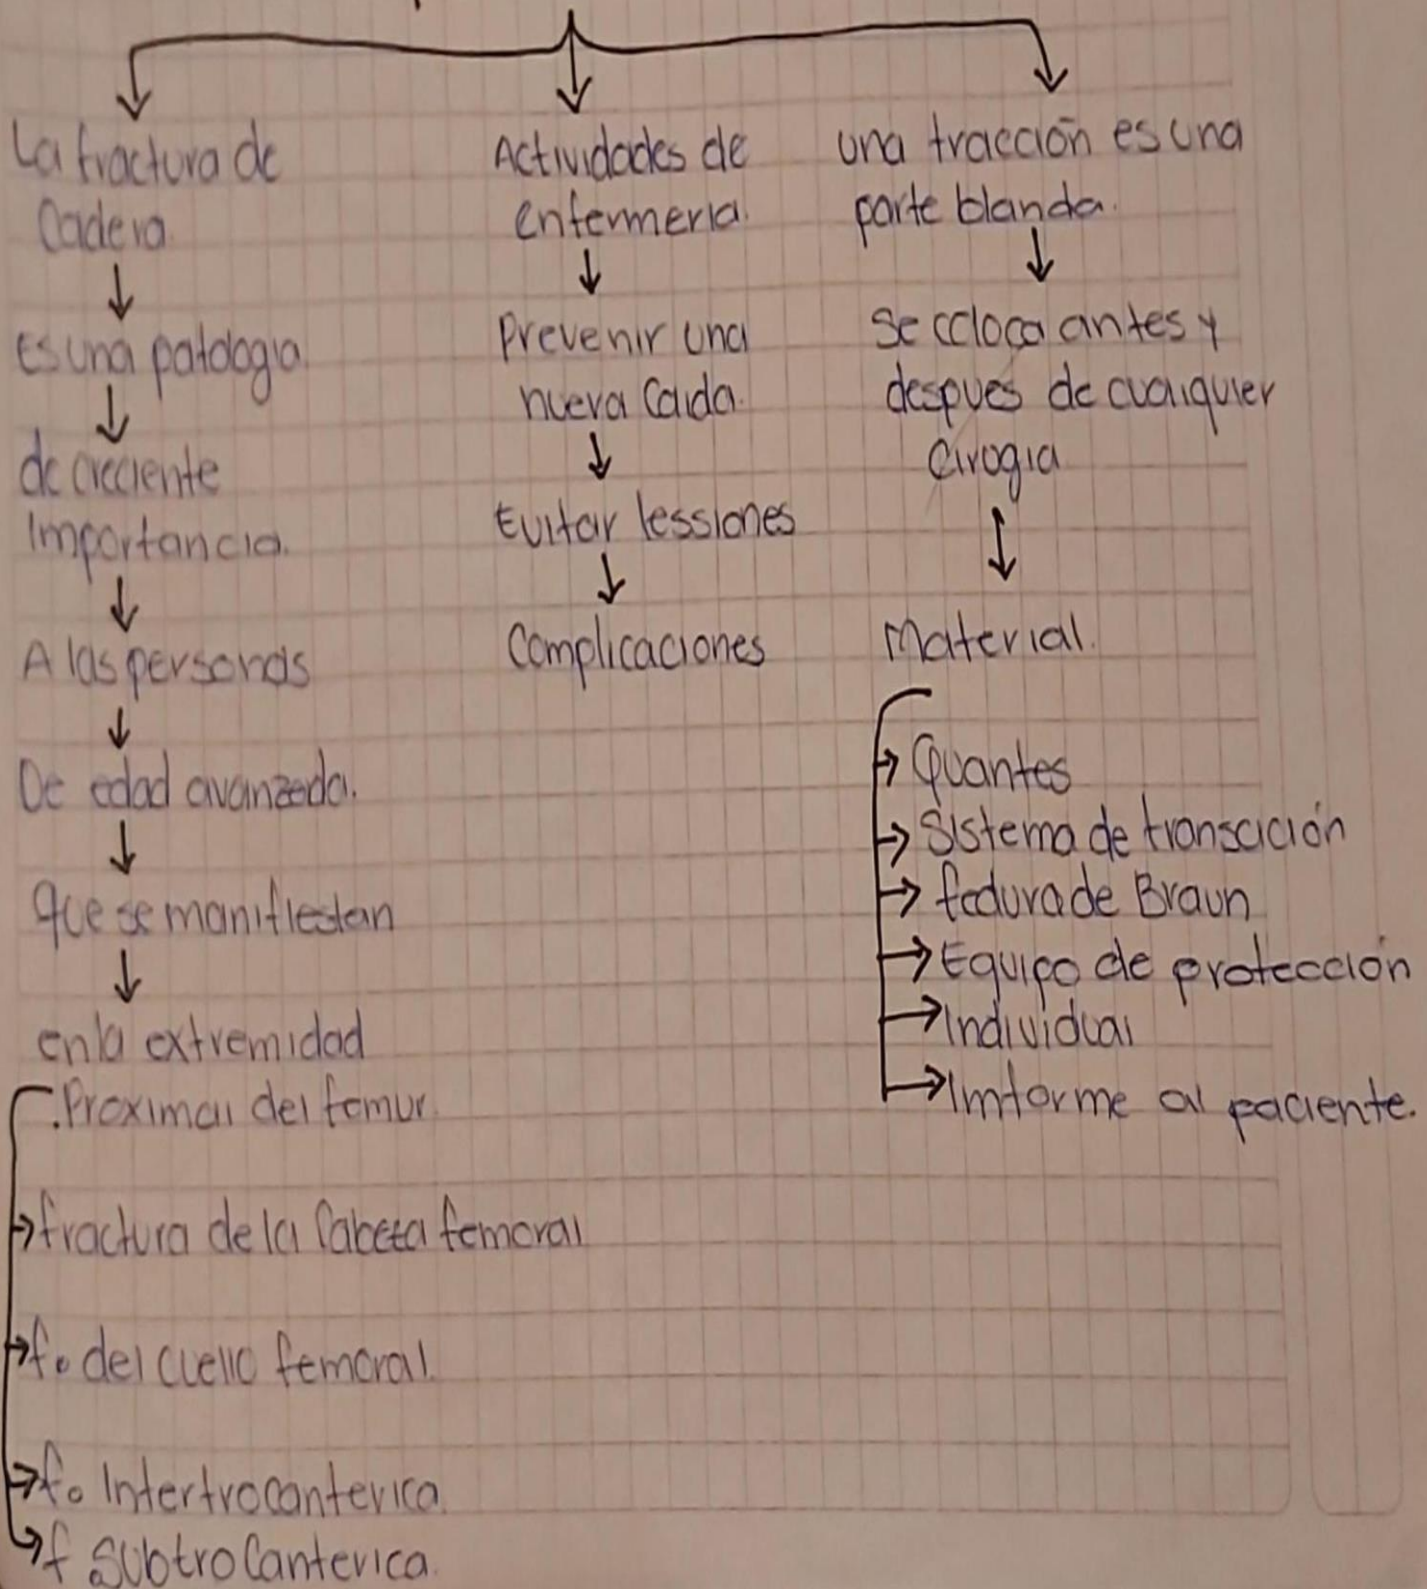 La fractura de
Cadera
Es una patologia
de creciente
Importancia.
A las personas
De edad avanzada.
que se manifiestan
en la extremidad
.Proximal del femur.
fractura de la Cabeza femoral
f. del cuello femoral.
f. Intertrocanterica.
f. Subtrocanterica.
Actividades de
enfermeria.
Prevenir una
nueva Caida.
Evitar lessiones
Complicaciones
una tracción es una
parte blanda.
Se ccloca antes y
despues de cualquier
Cirogia
Material.
Guantes
Sistema de transcición
fedura de Braun
Equipo de protección
Individual
Imforme al paciente.